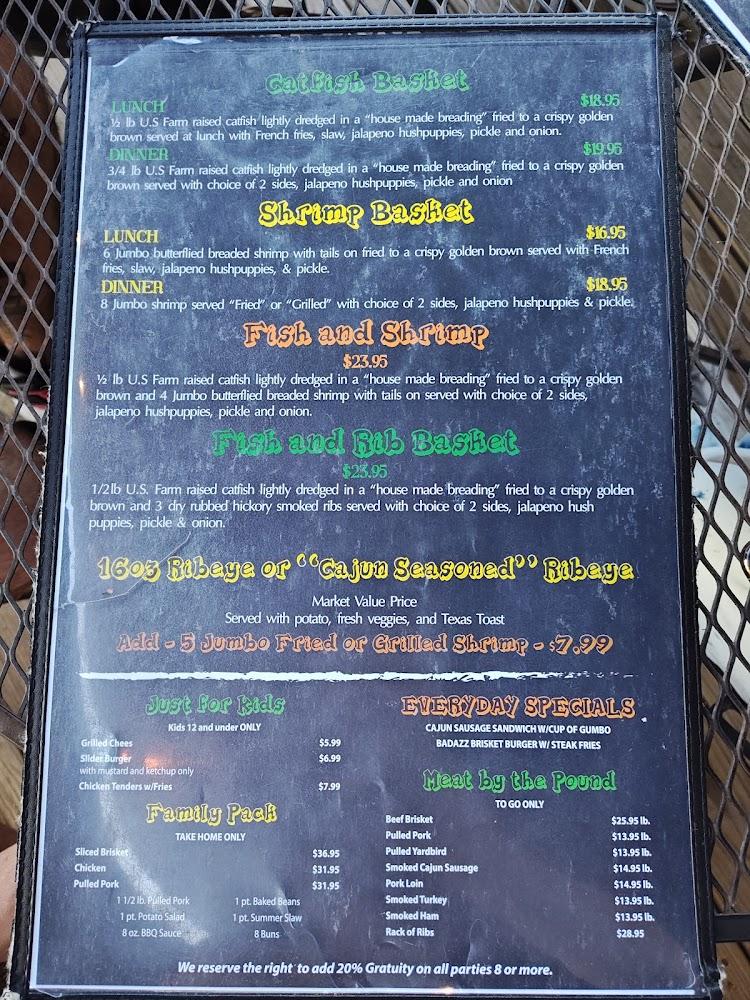 Catfish Basket
LUNCH $18.95
½ lb U.S Farm raised catfish lightly dredged in a "house made breading" fried to a crispy golden
brown served at lunch with French fries, slaw, jalapeno hushpuppies, pickle and onion.
DINNER $19.95
3/4 lb U.S Farm raised catfish lightly dredged in a "house made breading" fried to a crispy golden
brown served with choice of 2 sides, jalapeno hushpuppies, pickle and onion
Shrimp Basket
LUNCH $16.95
6 Jumbo butterflied breaded shrimp with tails on fried to a crispy golden brown served with French
fries, slaw, jalapeno hushpuppies, & pickle.
DINNER $18.95
8 Jumbo shrimp served "Fried" or "Grilled" with choice of 2 sides, jalapeno hushpuppies & pickle.
Fish and Shrimp
$23.95
½ lb U.S Farm raised catfish lightly dredged in a "house made breading" fried to a crispy golden
brown and 4 Jumbo butterflied breaded shrimp with tails on served with choice of 2 sides,
jalapeno hushpuppies, pickle and onion.
Fish and Rib Basket
$23.95
1/2lb U.S. Farm raised catfish lightly dredged in a "house made breading" fried to a crispy golden
brown and 3 dry rubbed hickory smoked ribs served with choice of 2 sides, jalapeno hush
puppies, pickle & onion.
16oz Ribeye or "Cajun Seasoned" Ribeye
Market Value Price
Served with potato, fresh veggies, and Texas Toast
Add - 5 Jumbo Fried or Grilled Shrimp - $7.99
Just for Kids
Kids 12 and under ONLY
Grilled Chees $5.99
Slider Burger $6.99
with mustard and ketchup only
Chicken Tenders w/Fries $7.99
Family Pack
TAKE HOME ONLY
Sliced Brisket $36.95
Chicken $31.95
Pulled Pork $31.95
1 1/2 lb. Pulled Pork 1 pt. Baked Beans
1 pt. Potato Salad 1 pt. Summer Slaw
8 oz. BBQ Sauce 8 Buns
EVERYDAY SPECIALS
CAJUN SAUSAGE SANDWICH W/CUP OF GUMBO
BADAZZ BRISKET BURGER W/ STEAK FRIES
Meat by the Pound
TO GO ONLY
Beef Brisket $25.95 lb.
Pulled Pork $13.95 lb.
Pulled Yardbird $13.95 lb.
Smoked Cajun Sausage $14.95 lb.
Pork Loin $14.95 lb.
Smoked Turkey $13.95 lb.
Smoked Ham $13.95 lb.
Rack of Ribs $28.95
We reserve the right to add 20% Gratuity on all parties 8 or more.